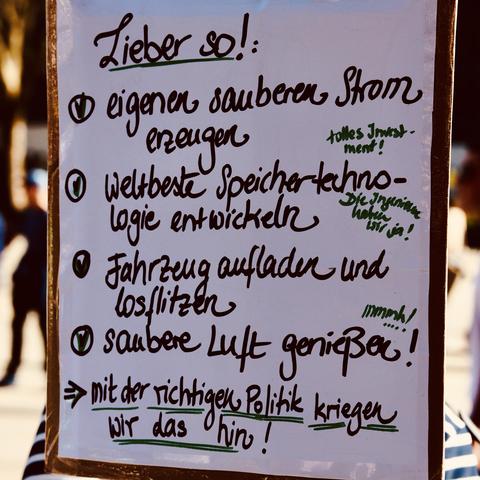 Lieber so!:
eigenen sauberen Strom
erzeugen
tolles Invest-
ment!
weltbeste Speichertechno-
logie entwickeln
Die Ingenieure
haben
wir ja!
Fahrzeug aufladen und
losflitzen
mmmh!
saubere Luft genießen!
⇒ mit der richtigen Politik kriegen
wir das hin!